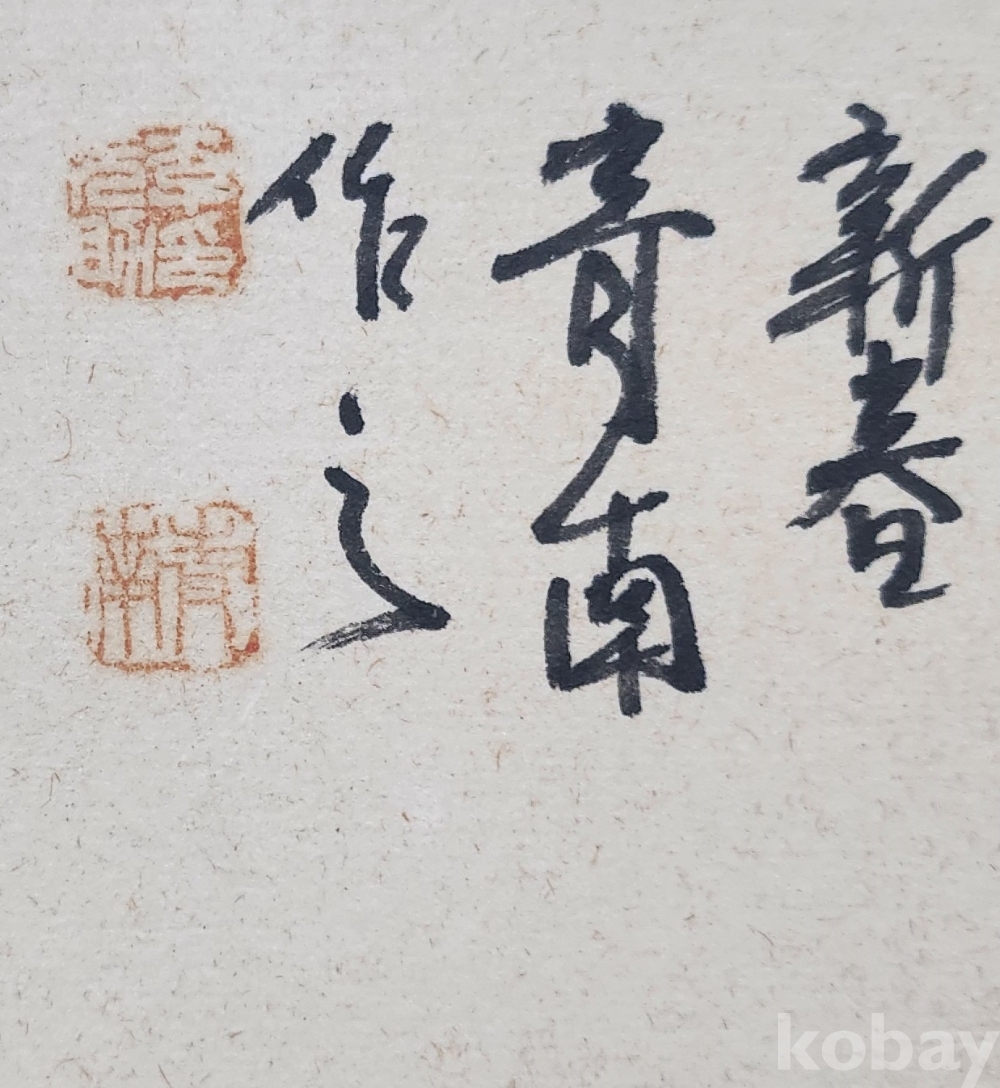 新春
青南
作之
青南
kobay